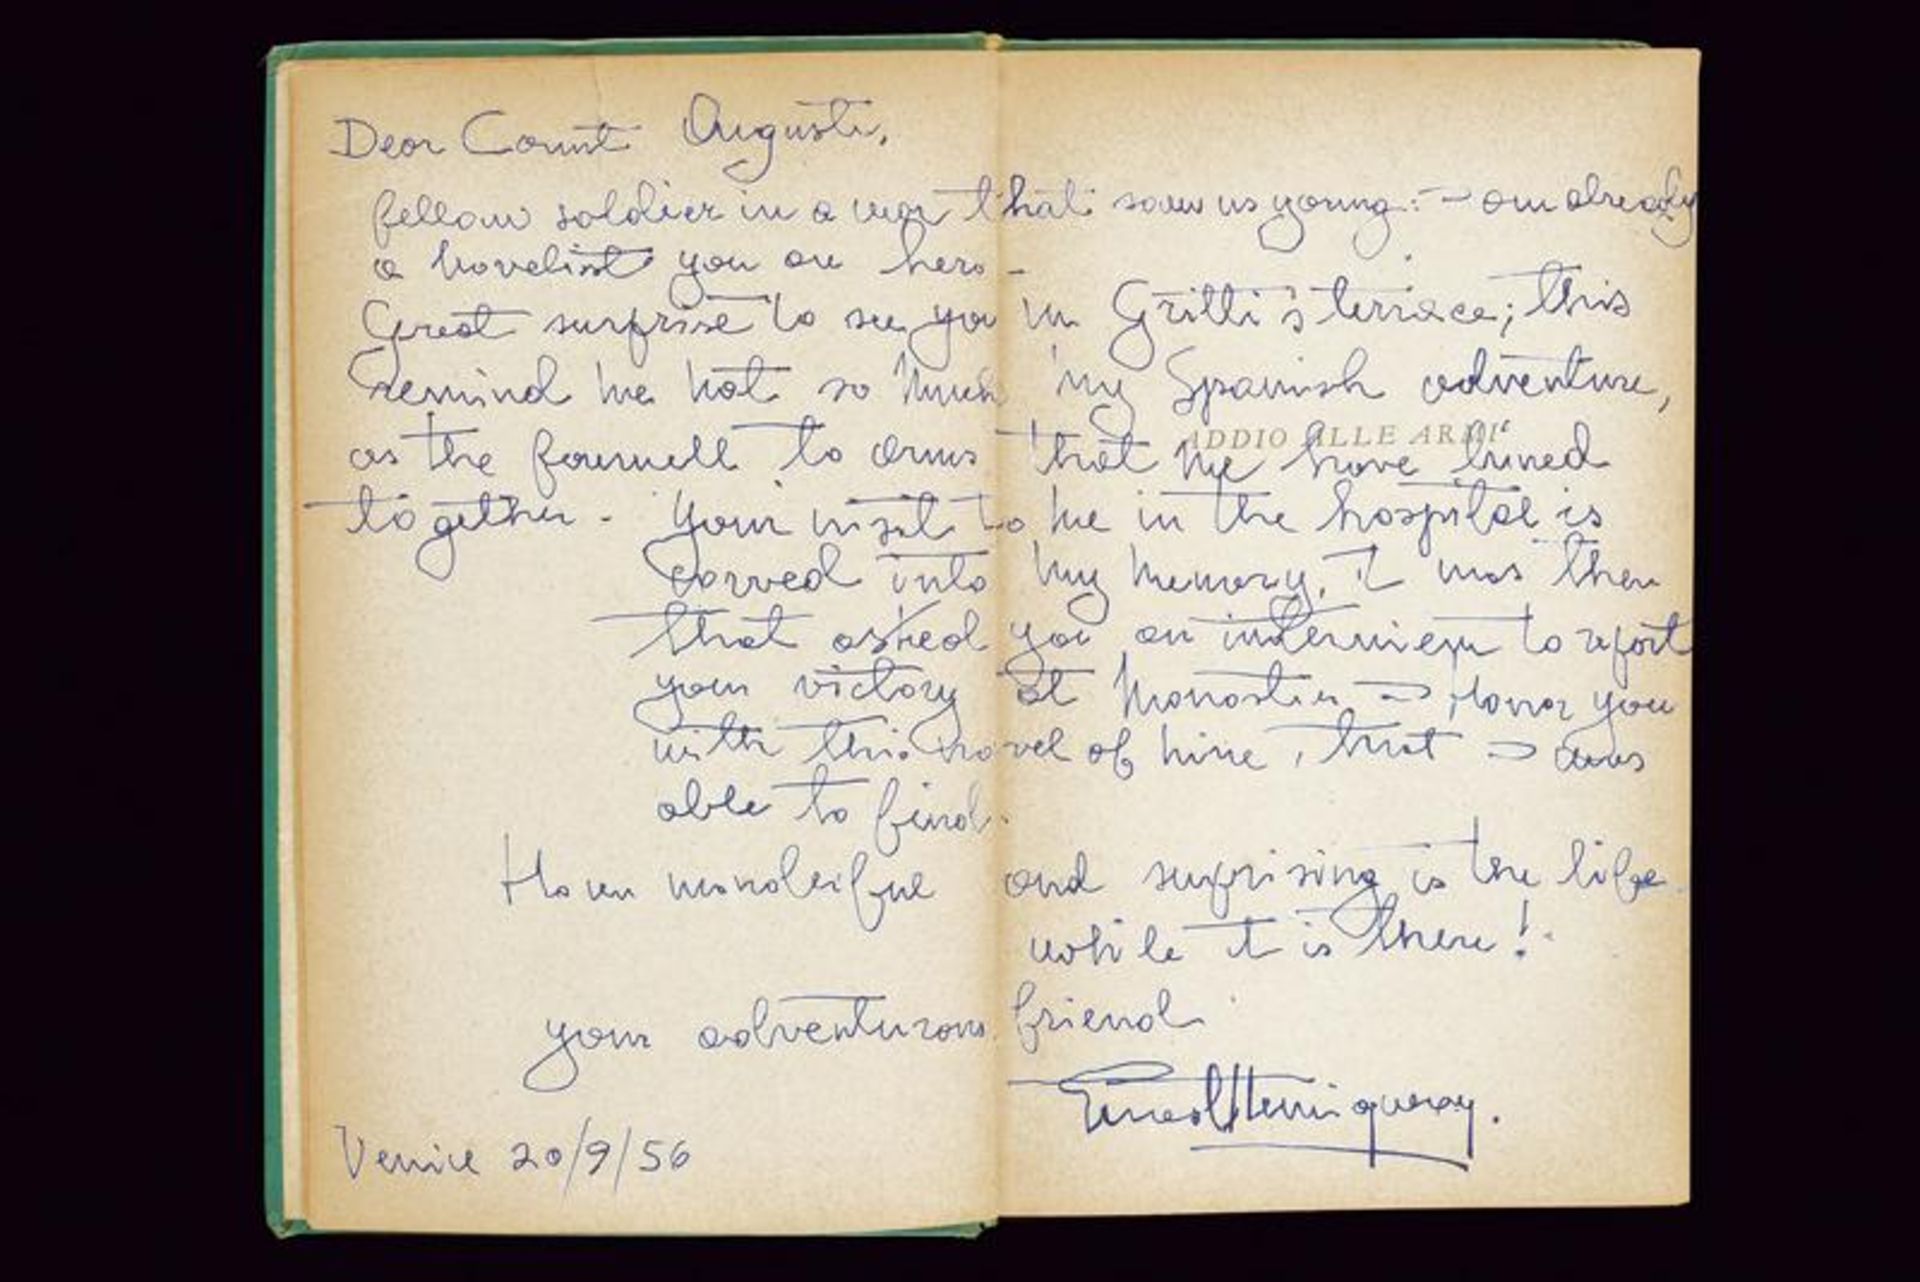 Dear Count Augusti,
fellow soldier in a war that saw us young: I am already
a novelist you an hero -
Great surprise to see you in Gritti's terrace; this
remind me not so much my Spanish adventure,
ADDIO ALLE ARMI
as the farewell to arms that we have lived
together - Your visit to me in the hospital is
carved into my memory, I was then
that asked you an interview to report
your victory at Monastir I Honor you
with this novel of mine, that I was
able to find.
How wonderful and surprising is the life
while it is there!
your adventurous friend
Ernest Hemingway.
Venice 20/9/56